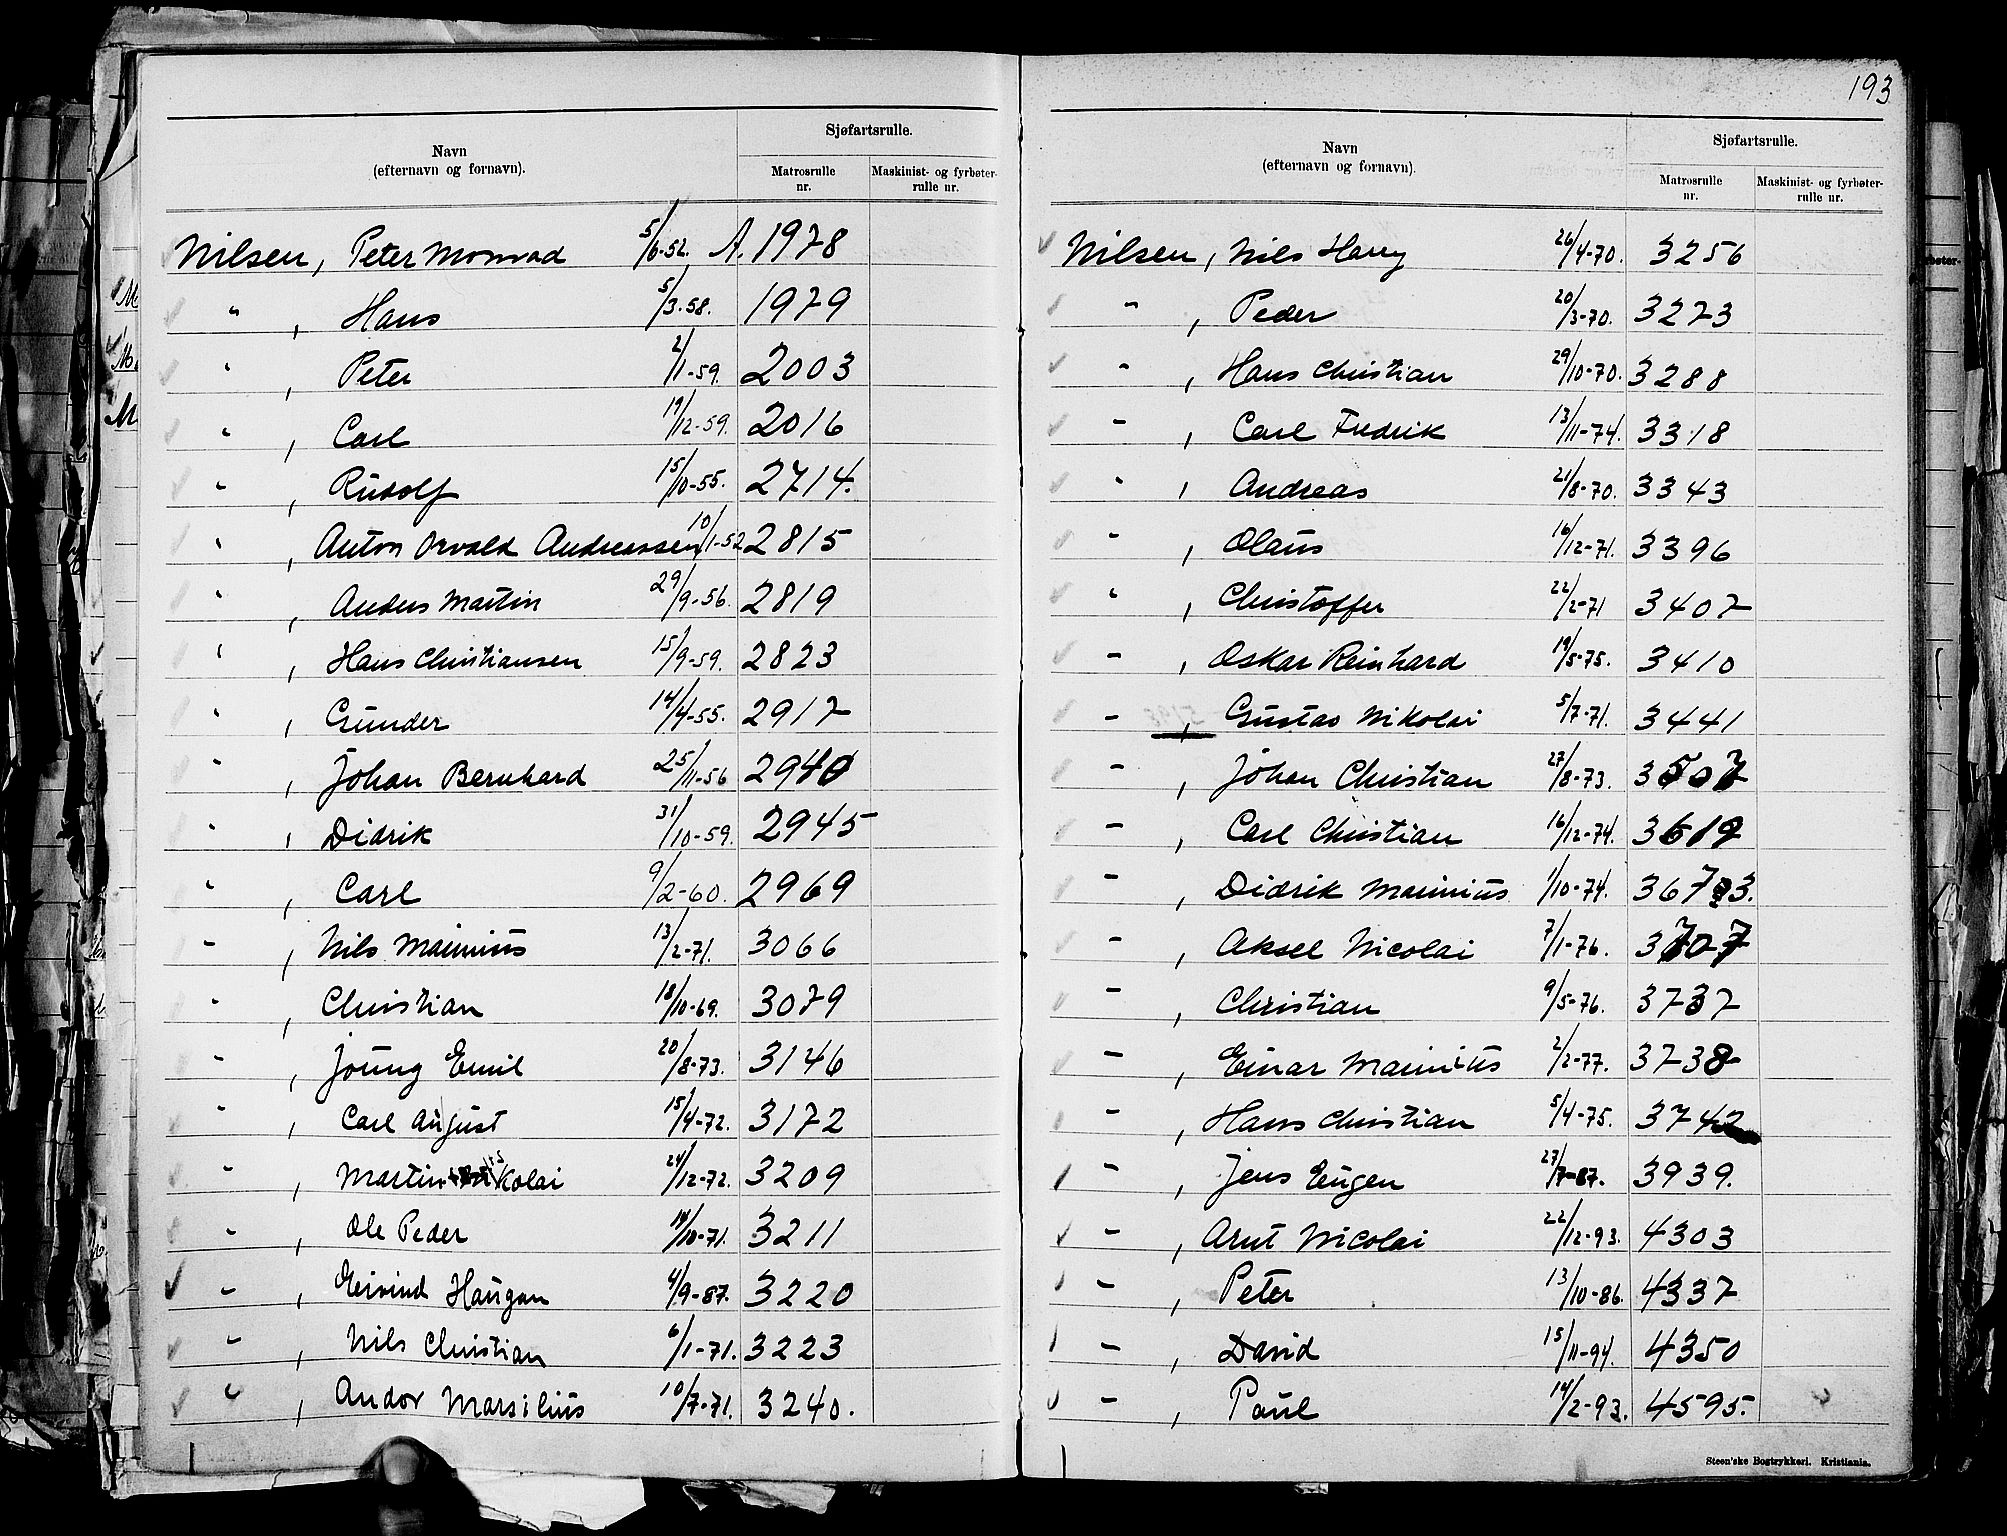 193
Navn
(efternavn og fornavn).
Sjøfartsrulle.
Matrosrulle
nr.
Maskinist- og fyrbøter-
rulle nr.
Nilsen, Peter Monrad 5/6-52. A. 1978
" , Hans 5/3-58. 1979
" , Peter 2/1-59. 2003
" , Carl 19/12-59. 2016
" , Rudolf 15/10-55. 2714.
" , Anton Orvald Andreassen 10/1-52 2815
" , Anders Martin 29/9-56. 2819
" , Hans Christiansen 15/9-59. 2823
" , Gunder 14/4-55. 2917
" , Johan Bernhard 25/11-56 2940
" , Didrik 31/10-59. 2945
" , Carl 9/2-60. 2969
" , Nils Marinius 13/2-71. 3066
" , Christian 18/10-69. 3079
" , Joung Emil 20/8-73. 3146
" , Carl August 15/4-72. 3172
" , Martin kolai 24/12-72. 3209
" , Ole Peder 14/10-71. 3211
" , Eivind Haugan 4/9-87. 3220
" , Nils Christian 6/1-71. 3223
" , Andor Marsilius 10/7-71. 3240.
Navn
(efternavn og fornavn).
Sjøfartsrulle.
Matrosrulle
nr.
Maskinist- og fyrbøter-
rulle nr.
Nilsen, Nils Harry 26/4-70. 3256
" , Peder 20/3-70. 3273
" , Hans Christian 29/10-70. 3288
" , Carl Fredrik 13/11-74. 3318
" , Andreas 21/8-70. 3343
" , Olaus 16/12-71. 3396
" , Christoffer 22/2-71 3407
" , Oskar Reinhard 19/5-75. 3410
" , Gustav Nikolai 5/7-71. 3441
" , Johan Christian 27/8-73. 3507
" , Carl Christian 16/12-74. 3619
" , Didrik Marinius 1/10-74. 3673.
" , Aksel Nicolai 7/1-76. 3707
" , Christian 9/5-76. 3737
" , Einar Marinius 2/2-77. 3738
" , Hans Christian 5/4-75. 3742
" , Jens Eugen 27/7-87. 3939.
" , Arnt Nicolai 22/12-93. 4303
" , Peter 13/10-86. 4337
" , David 15/11-94. 4350
" , Paul 14/2-93. 4595.
Steen'ske Bogtrykkeri. Kristiania.